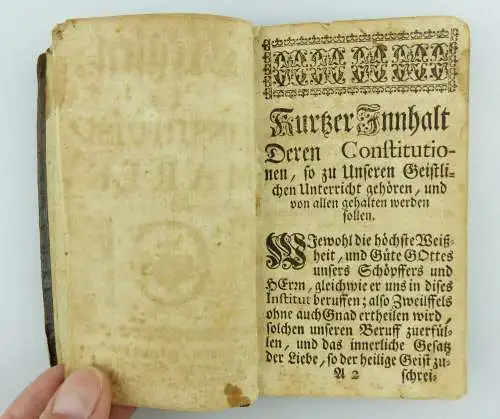 Kurtzer Innhalt
Deren Constitutio-
nen, so zu Unseren Geistli-
chen Unterricht gehören, und
von allen gehalten werden
sollen.
WIewohl die höchste Weiß-
heit, und Güte GOttes
unsers Schöpffers und
HErrn, gleichwie er uns in dises
Institut beruffen; also Zweiffels
ohne auch Gnad ertheilen wird,
solchen unseren Beruff zuerfül-
len, und das innerliche Gesatz
der Liebe, so der heilige Geist zu-
A 2 schrei-